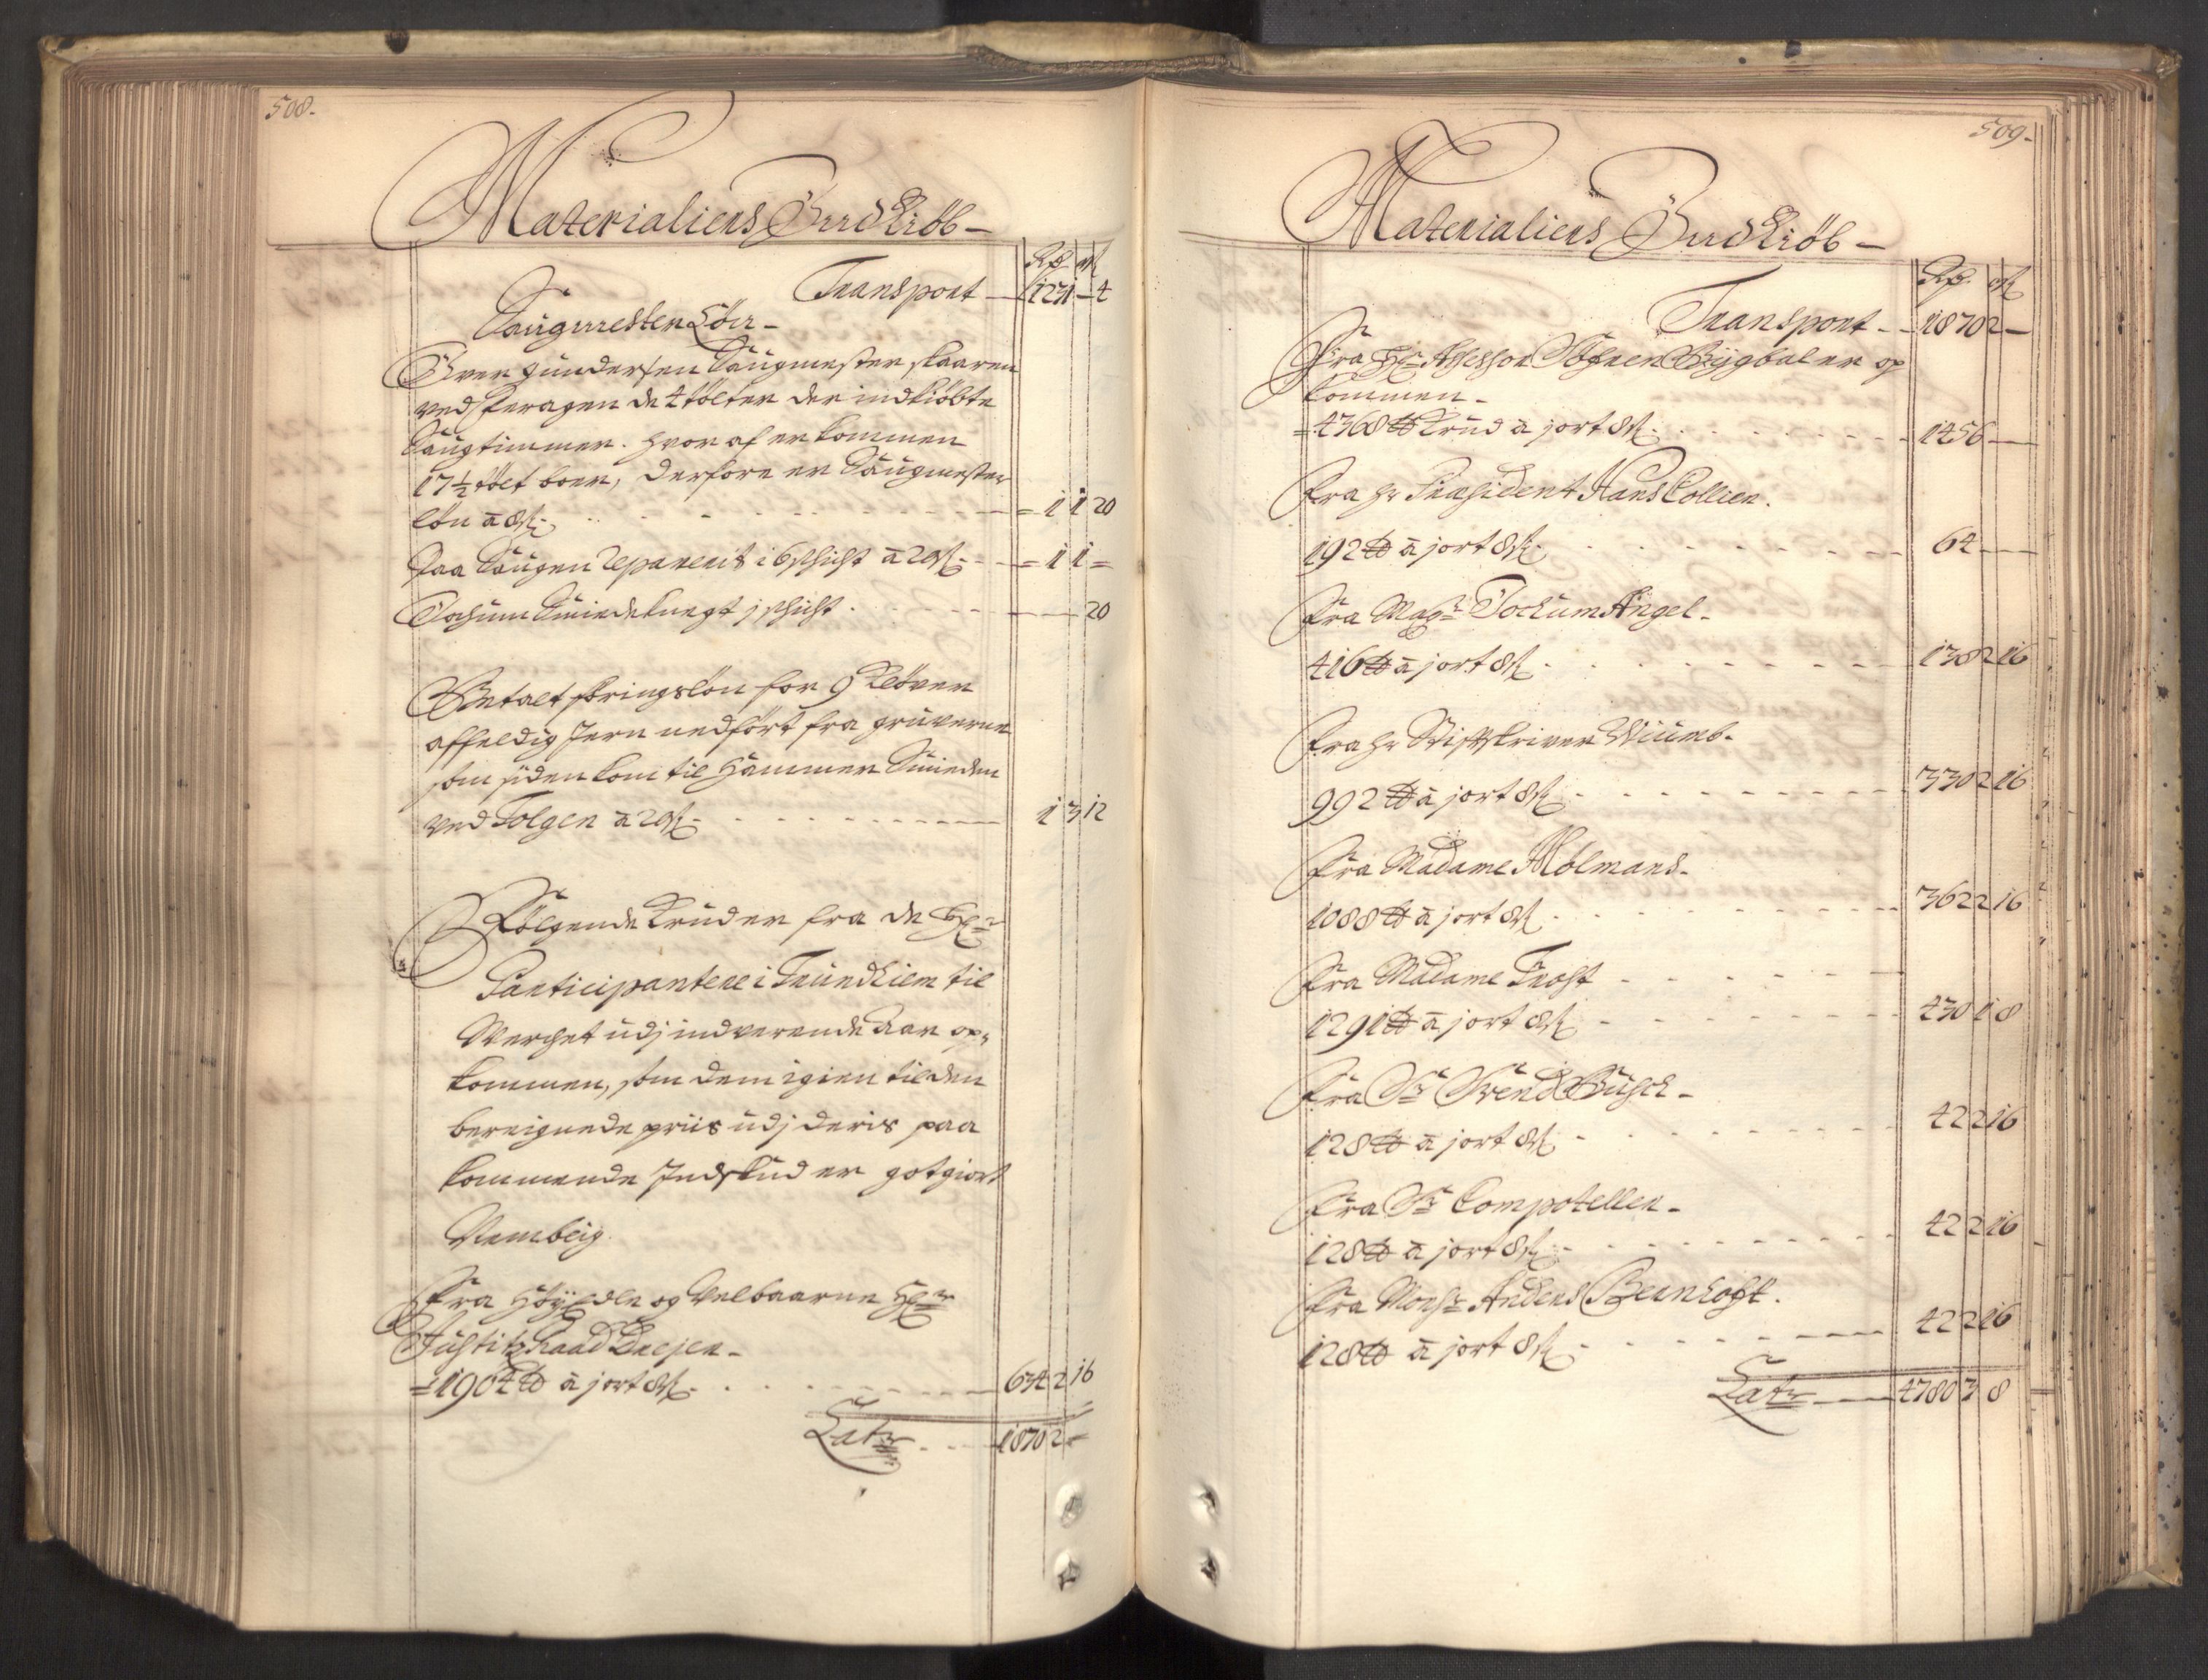 508.
Materialiers Indkiöb
Rdr ort ß
Transport 1231 - 4
Saugmester Lön
Iver Gundersen Saugmester skaaren
ved de 4 tölter der indkiöbte
Saugtimmer. hvor af er kommen
17½ tölt boer, derfore er Saugmester
lön a 8ß 1 1 20
Paa Saugen reparerit i 6 schicht a 20ß 1 1 =
Jochum Smiedeknegt j schicht 20
Betalt föringslön for 9 Klöver
affeldig Jern nedfört fra gruverne
som siden kom til Hammer Smieden
ved Tolgen a 20ß 1 3 12
Fölgende Krud er fra de Hr
Participantere i Trundhiem til
Verchet udj indverende Aar op„
kommen, som dem igien til den
bereignede priis udj deris paa
kommende Indskud er gotgiort
Nemblig
Fra Höyedle og Velbaarne Hr
Justitz Raad Drejer
=1904 ℔ a j ort 8ß 634 2 16
Latr 1870 2 -
509.
Materialiers Indkiöb
Rdr ort ß
Transport 1870 2 -
Fra Hr Assessor Söfren Bygbal er op
kommen
=4368 ℔ Krud a j ort 8ß 1456
Fra Hr Præsident Hans Collien.
192 ℔ a j ort 8ß 64
Fra Magr Jochum Angel
416 ℔ a j ort 8ß 138 2 16
Fra Hr Stiftskriver Wiumb
992 ℔ a j ort 8ß 330 2 16
Fra Madame Mölmans
1088 ℔ a j ort 8ß 362 2 16
Fra Madame Trost
1291 ℔ a j ort 8ß 430 1 8
Fra Sr Svend Busch
128 ℔ a j ort 8ß 42 2 16
Fra Sr Compoteller
128 ℔ a j ort 8ß 42 2 16
Fra Monsr Anders Bernhoft.
128 ℔ a j ort 8ß 42 2 16
Latr 4780 3 8